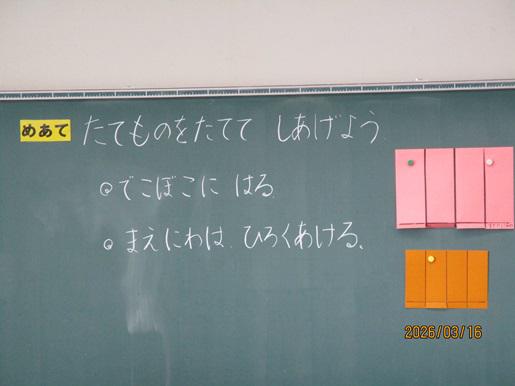 めあて たてものをたてて しあげよう
でこぼこに はる
まえにわは ひろくあける、
2026/03/16